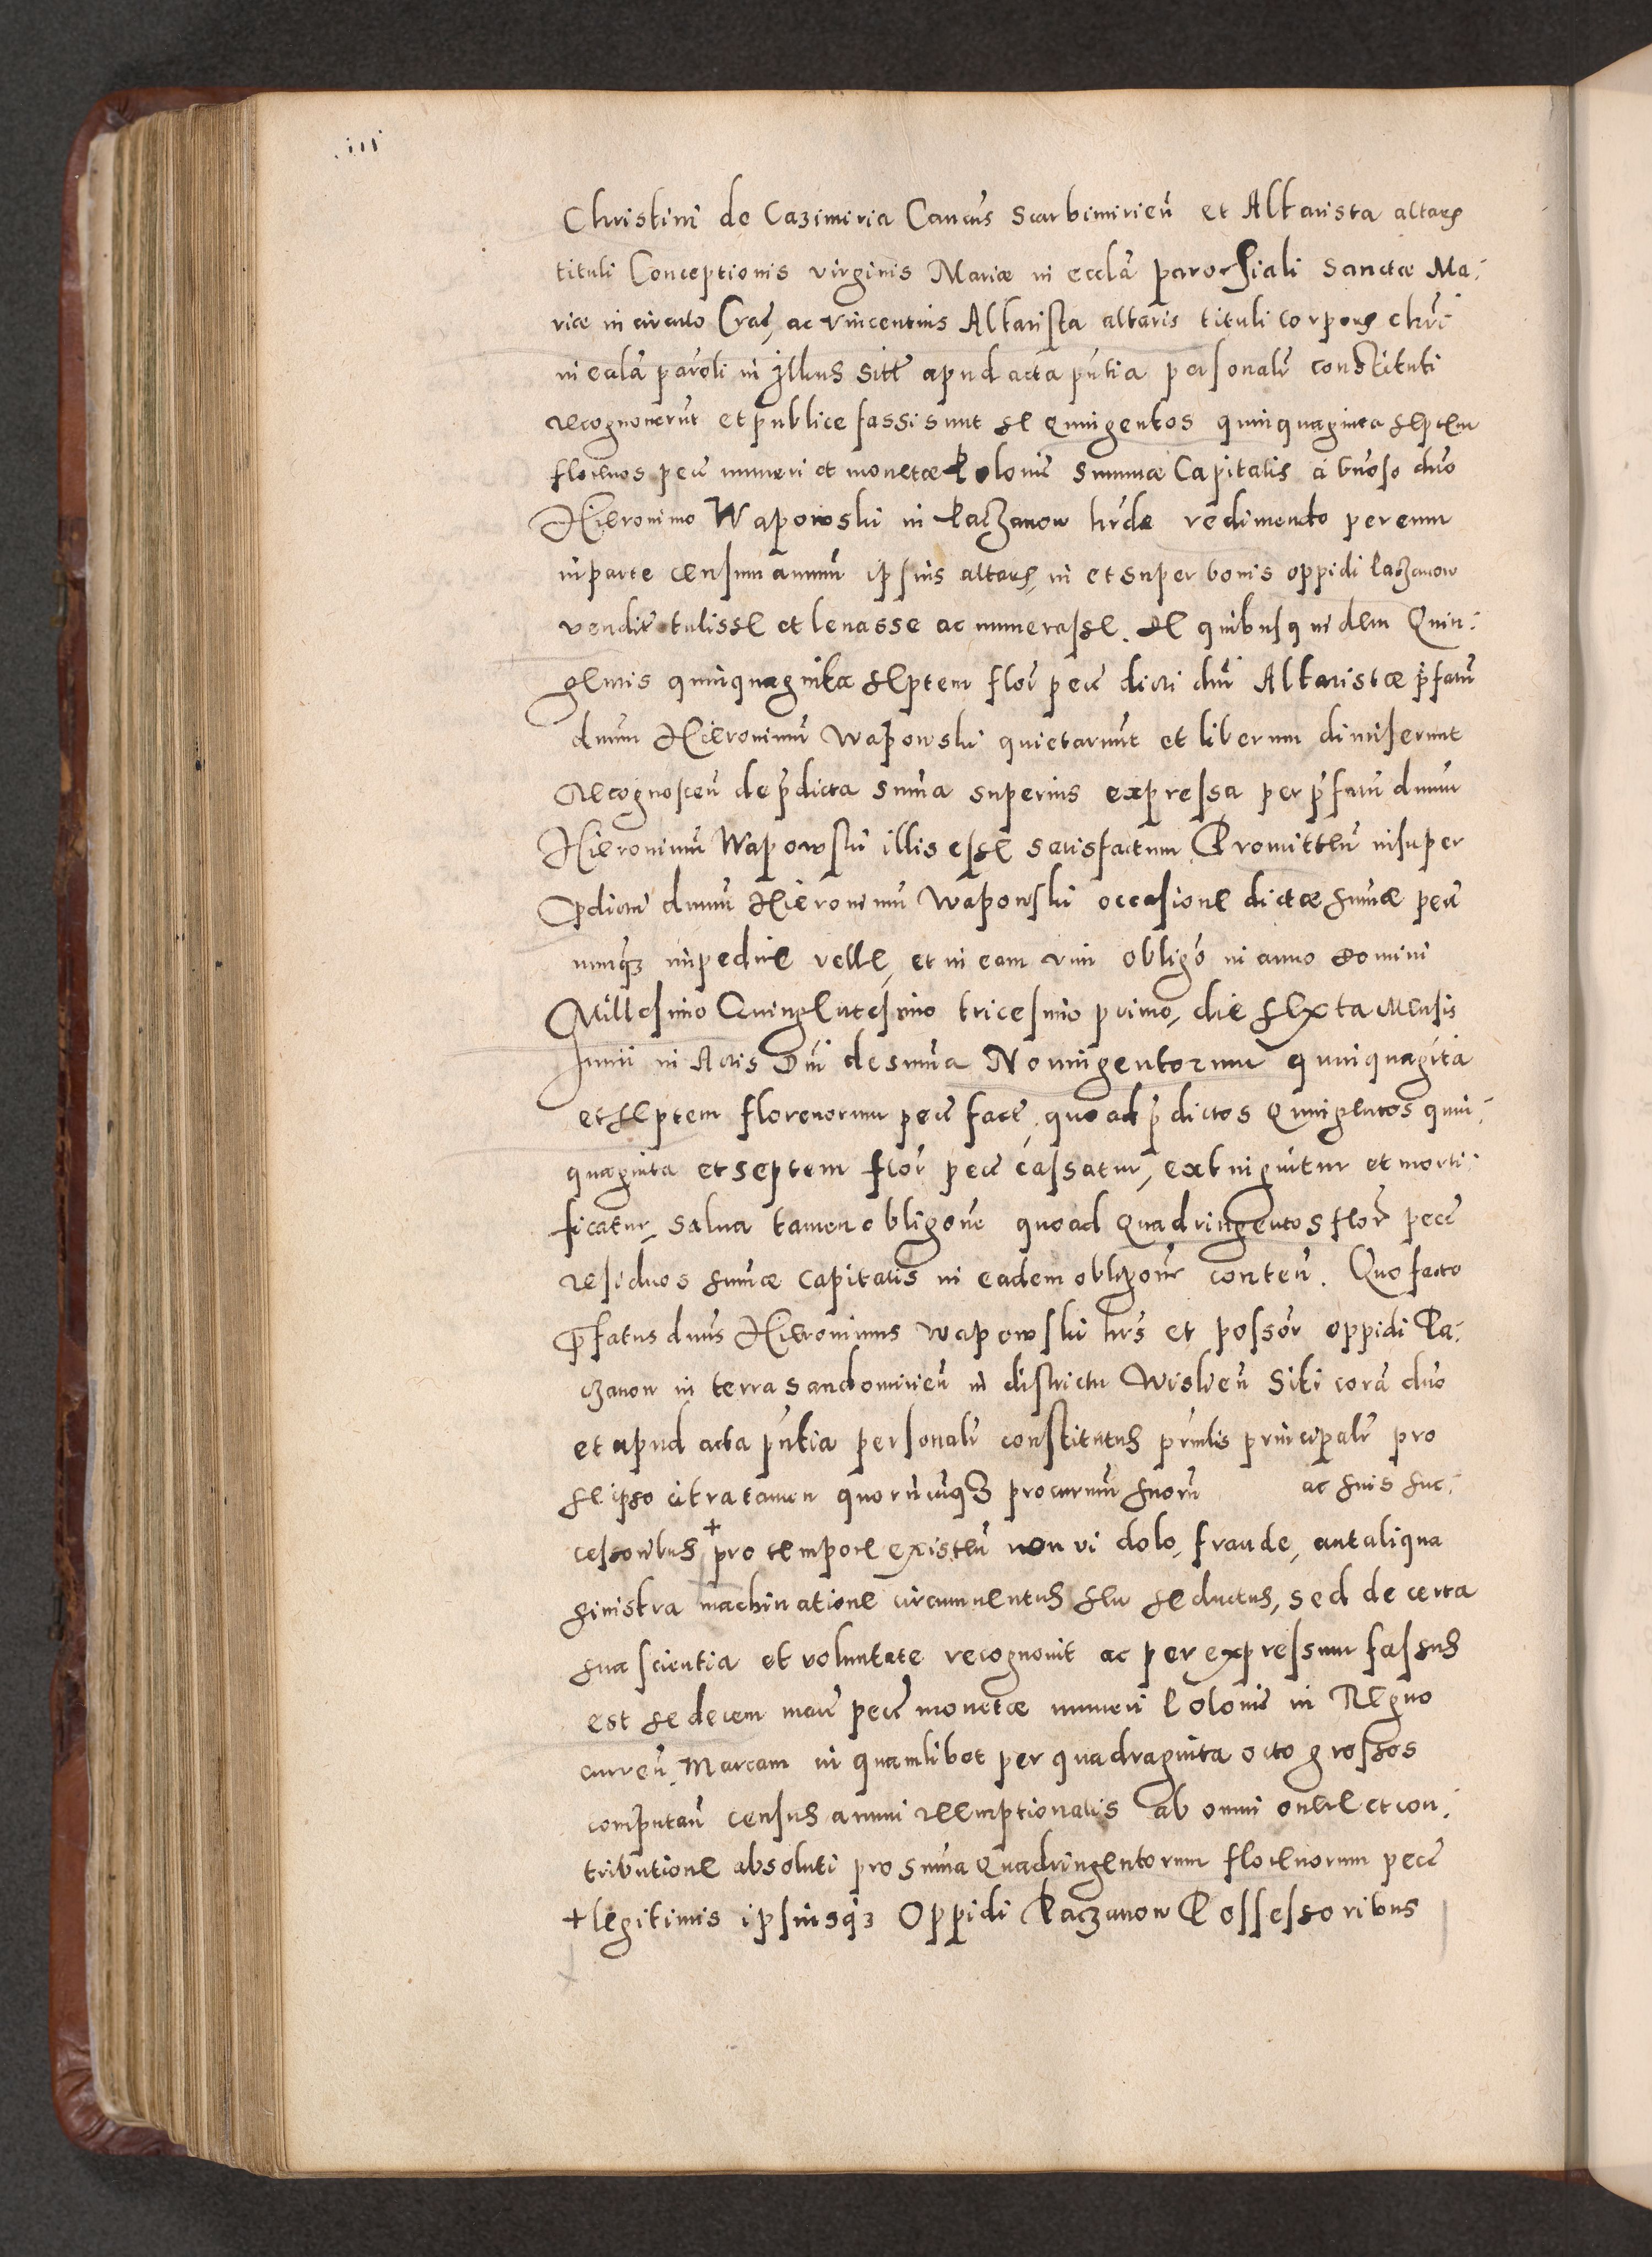 .iii.
Christini de Cazimiria Canc̄us Scarbimirien̄ et Altarista altaris
tituli Conceptionis virginis Mariæ in eccl̄a parochiali Sanctæ Ma⸗
riæ in circulo Crac̄, ac Vincentius Altarista altaris tituli corporis chr̄i
in eccl̄a paroc̄li in Ilkus sitt̄ apud acta pn̄tia personalr̄ constituti
recognoverūt et publice fassi sunt se quingentos quinquaginta septem
florenos pec̄ numeri et monetæ Polonic̄ Summæ Capitalis a gn̄oso dn̄o
Hieronimo Wapowski in Paczanow hr̄de redimendo perenm
in parte censum annuū ipsius altaris, in et super bonis oppidi Paczanow
vendit̄ tulisse et levasse ac numerasse. De quibus quidem Quin⸗
gentis quinquaginta septem flor̄ pec̄ dicti dn̄i Altaristæ p̄fatū
dnum Hieronimū Wapowski quietarunt et liberum dimiserunt
Recognoscen̄ de p̄dicta sum̄a superius expressa per p̄fatū dnum
Hieronimū Wapowski illis esse satisfactum Promitten̄ insuper
p̄dictū dnum Hieronimū Wapowski occasione dictæ sum̄æ pec̄
nunq̄ȝ impedire velle, et in eam vim obligō in anno domini
Millesimo Quingentesimo tricesimo primo, die sexta mensis
Junii in Actis Dn̄i de sum̄a Noningentorum quinquagīta
et septem florenorum pec̄ fact̄, quo ad p̄dictos Quingentos quin⸗
quaginta et septem flor̄ pec̄ cassatur, extinguitur et morti⸗
ficatur, salva tamen obligōne quoad Quadringentos flor̄ pec̄
residuos sum̄æ capitalis in eadem obligōne conten̄. Quo facto
p̄fatus dnūs Hieronimus Wapowski hr̄s et possōr oppidi Pa⸗
czanow in terra Sandomirien̄ in districtu Wislicen̄ Siti corā dn̄o
et apud acta pn̄tia personalr̄ constitutus pn̄lis principalr̄ pro
se ipso citra tamen quorūcūqȝ procurum̄ suorū ac suis suc⸗
cessoribus + pro tempore existen̄ non vi dolo, fraude, aut aliqua
sinistra machinatione circumventus seu seductus, sed de certa
sua scientia et voluntate recognovit ac per expressum fassus
est se decem marc̄ pec̄ monetæ numeri Polonic̄ in Regno
curren̄. Marcam in quamlibet per quadraginta octo grossos
computan̄ census annui reemptionalis ab omni onere et con⸗
tributione absoluti pro sum̄a Quadringentorum florenorum pec̄
+ legitimis ipsiusqȝ Oppidi Paczanow Possessoribus